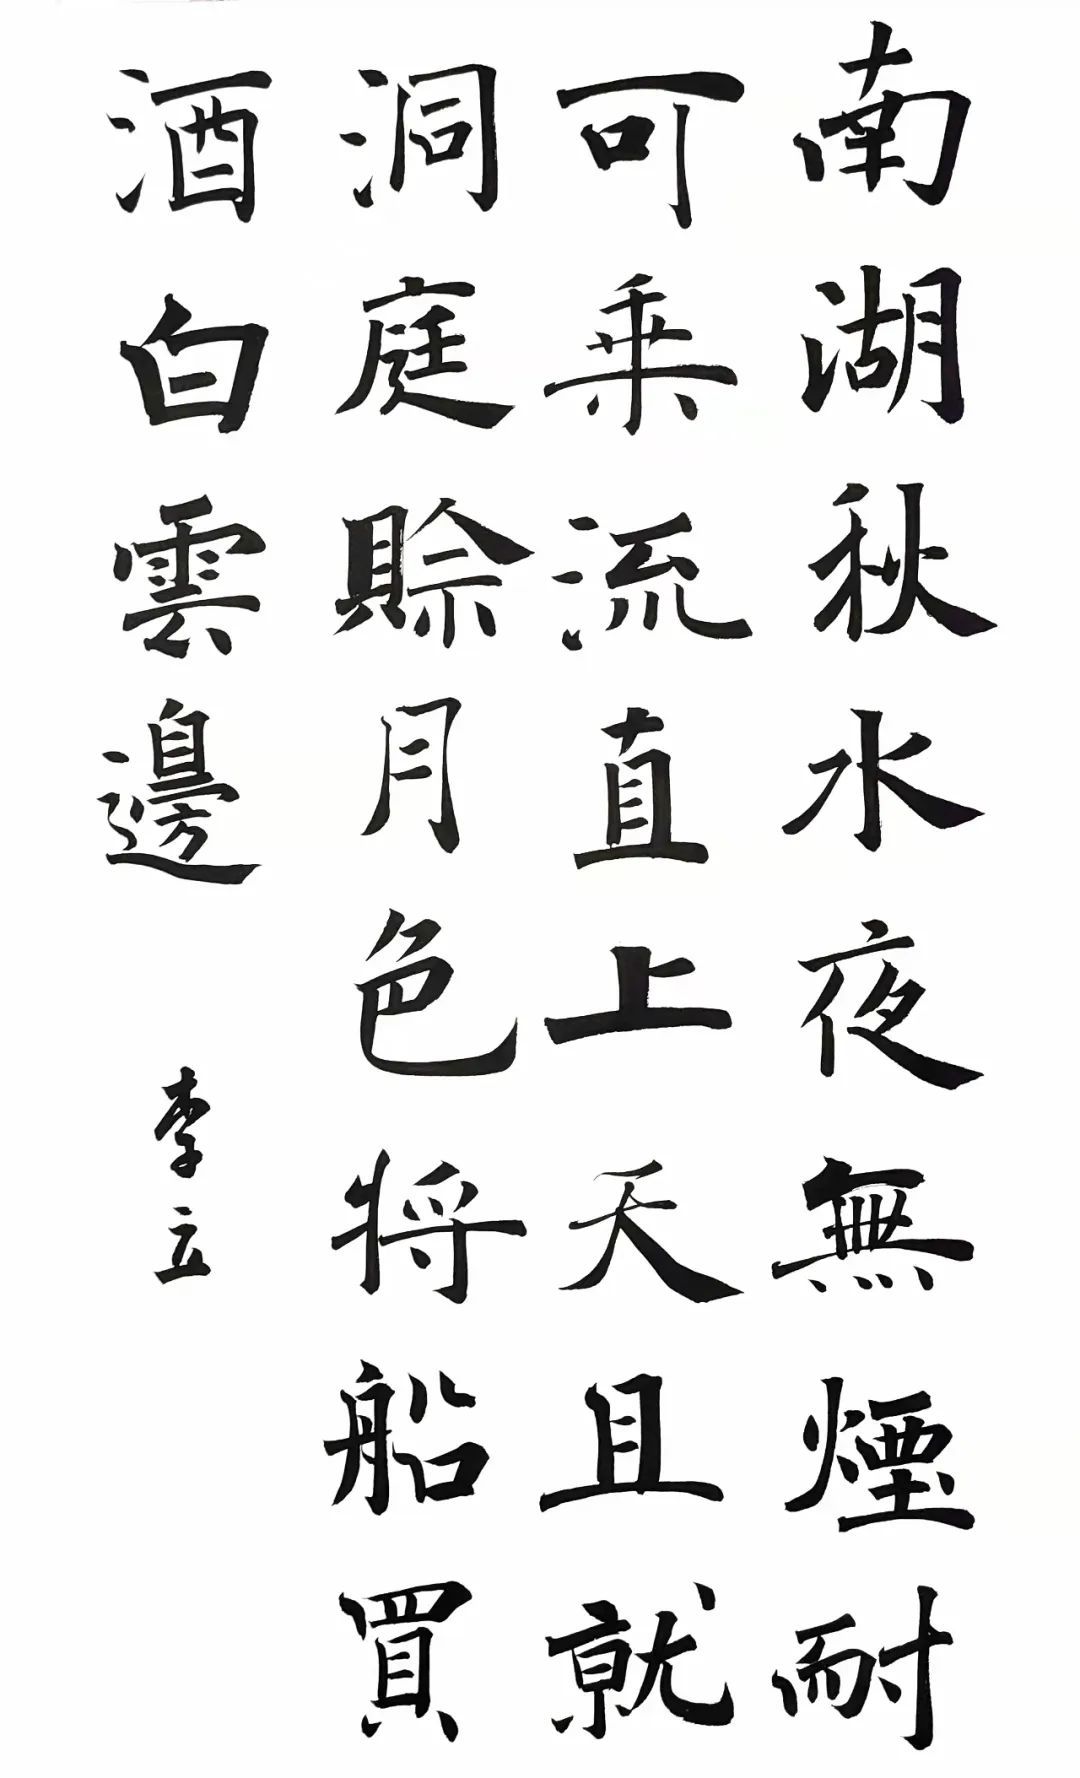 南湖秋水夜無煙耐
可乗流直上天且就
洞庭賒月色将船買
酒白雲邊
李立